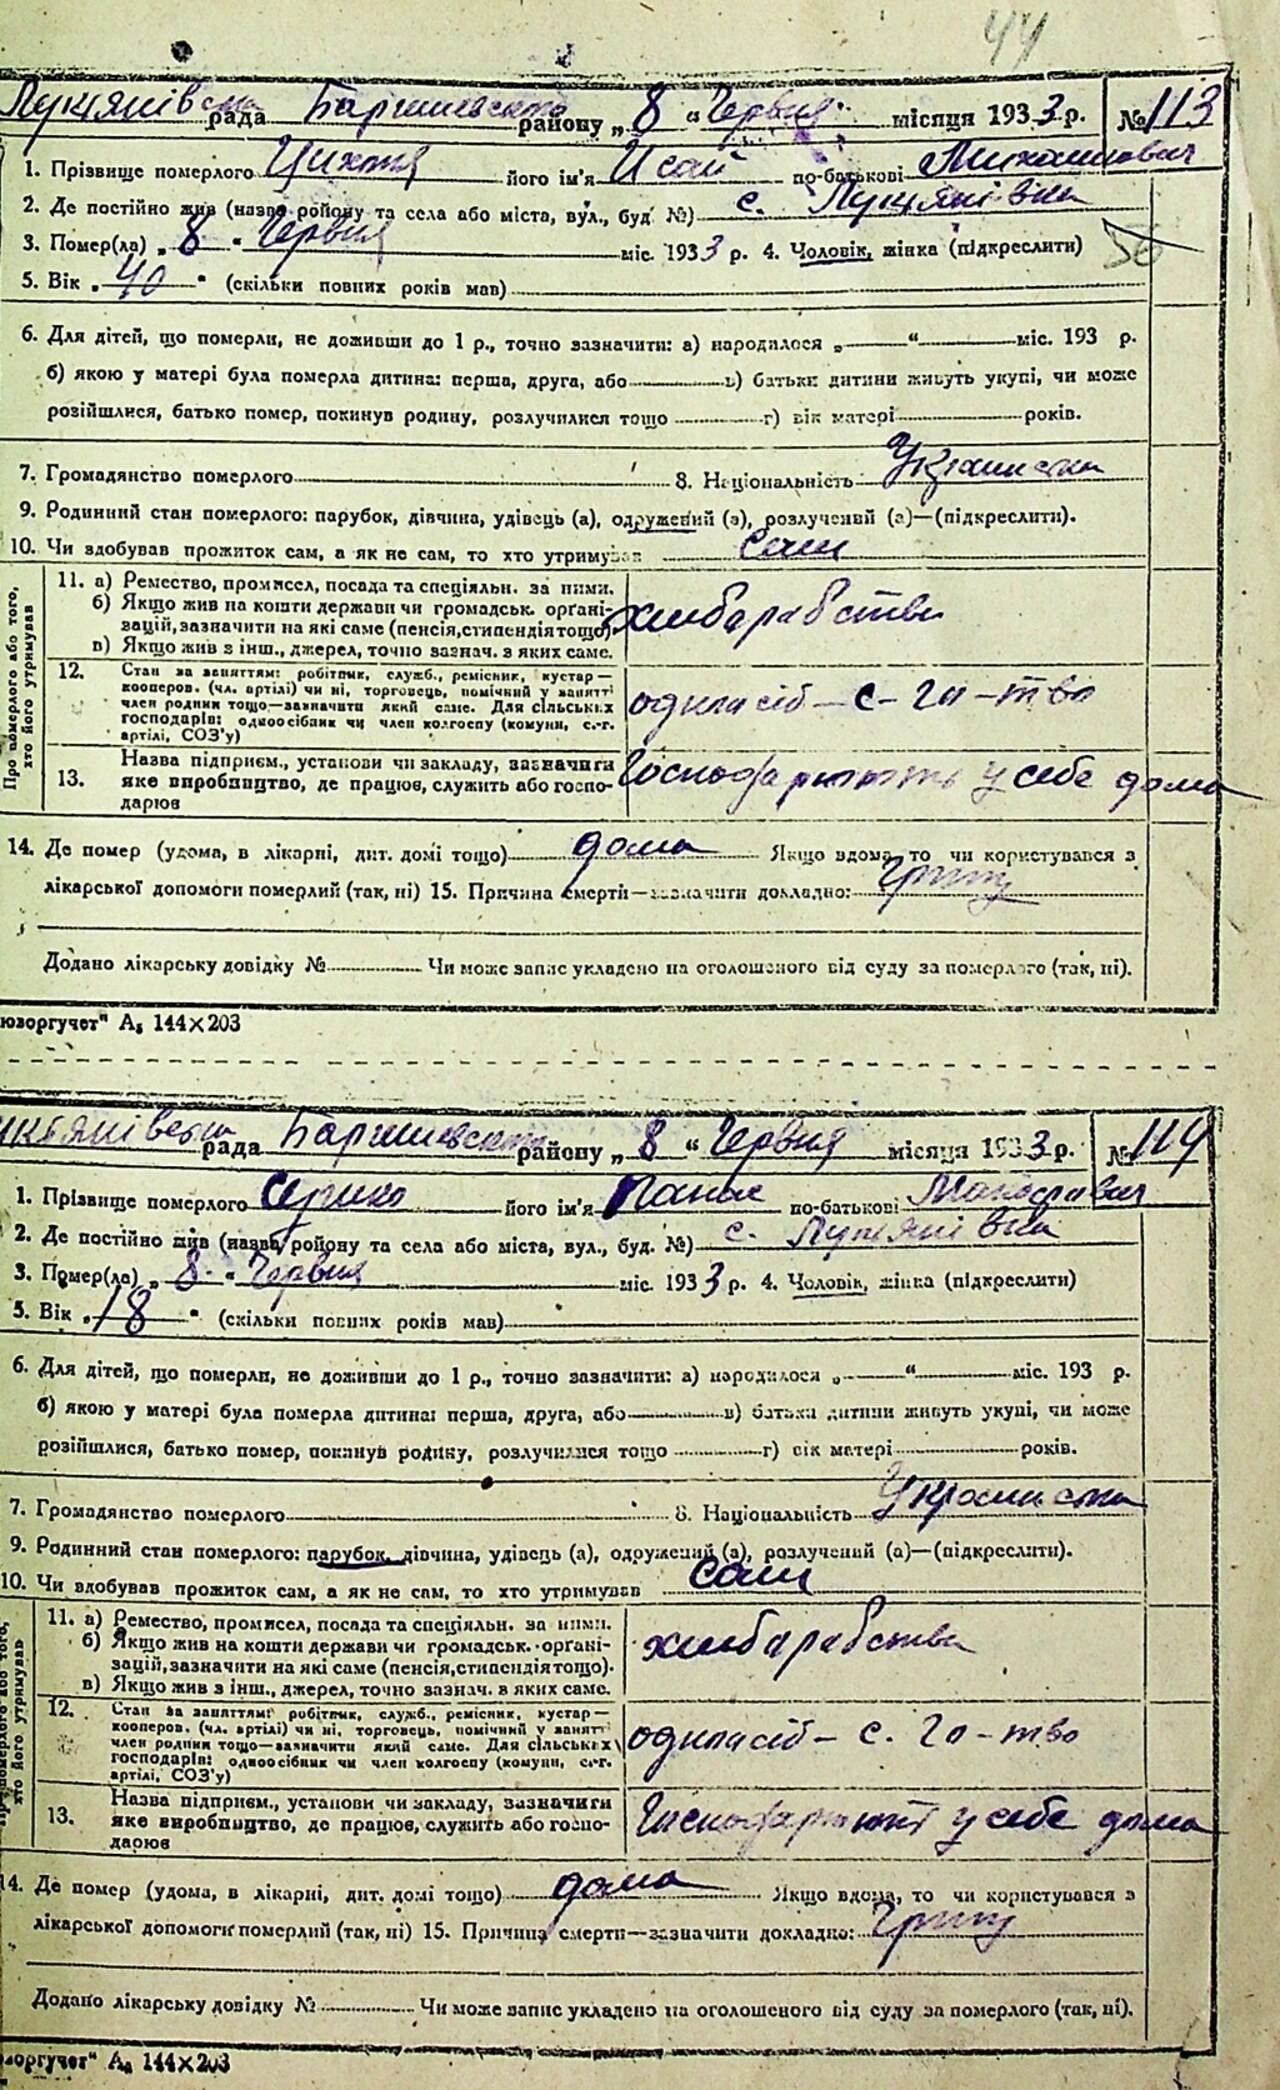 44
Лукянівська рада Баришевського району „ 8 “ Червня місяця 1933 р. № 113
1. Прізвище померлого його ім'я Исай по-батькові Михайлович
2. Де постійно жив (назва району та села або міста, вул., буд. №) с. Лукянівка
3. Помер(ла) „ 8 “ Червня міс. 1933 р. 4. Чоловік, жінка (підкреслити) 56
5. Вік „ 40 “ (скільки повних років мав)
6. Для дітей, що померли, не доживши до 1 р., точно зазначити: а) народилося „ “ міс. 193 р.
б) якою у матері була померла дитина: перша, друга, або в) батьки дитини живуть укупі, чи може
розійшлися, батько помер, покинув родину, розлучилися тощо г) вік матері років.
7. Громадянство померлого 8. Національність Українська
9. Родинний стан померлого: парубок, дівчина, удівець (а), одружений (а), розлучений (а)—(підкреслити).
10. Чи здобував прожиток сам, а як не сам, то хто утримував сам
Про померлого або того, хто його утримував
11. а) Ремество, промисел, посада та спеціяльн. за ними.
б) Якщо жив на кошти держави чи громадськ. органі-
зацій, зазначити на які саме (пенсія, стипендія тощо). хлибарабства
в) Якщо жив з інш., джерел, точно зазнач. з яких саме.
12. Стан за заняттям: робітник, служб., ремісник, кустар—
кооперов. (чл. артілі) чи ні, торговець, помічний у занятті
член родини тощо—зазначити який саме. Для сільських
господарів: одноосібник чи член колгоспу (комуни, с.-г.
артілі, СОЗ'у)
одиносіб – с – го – тво
13. Назва підприєм., установи чи закладу, зазначити
яке виробництво, де працює, служить або госпо-
дарює
у себе дома
14. Де помер (удома, в лікарні, дит. домі тощо) дома Якщо вдома, то чи користувався з
лікарської допомоги померлий (так, ні) 15. Причина смерти—зазначити докладно: Грипу
Додано лікарську довідку № Чи може запис укладено на оголошеного від суду за померлого (так, ні).
юзоргучет" А₅ 144×203
рада Баришевського району „ 8 “ Червня місяця 1933 р. № 114
1. Прізвище померлого його ім'я Панас по-батькові
2. Де постійно жив (назва району та села або міста, вул., буд. №) с. Лукянівка
3. Помер(ла) „ 8 “ Червня міс. 1933 р. 4. Чоловік, жінка (підкреслити)
5. Вік „ 18 “ (скільки повних років мав)
6. Для дітей, що померли, не доживши до 1 р., точно зазначити: а) народилося „ “ міс. 193 р.
б) якою у матері була померла дитина: перша, друга, або в) батьки дитини живуть укупі, чи може
розійшлися, батько помер, покинув родину, розлучилися тощо г) вік матері років.
7. Громадянство померлого 8. Національність Українська
9. Родинний стан померлого: парубок, дівчина, удівець (а), одружений (а), розлучений (а)—(підкреслити).
10. Чи здобував прожиток сам, а як не сам, то хто утримував сам
хто його утримував
11. а) Ремество, промисел, посада та спеціяльн. за ними.
б) Якщо жив на кошти держави чи громадськ. органі-
зацій, зазначити на які саме (пенсія, стипендія тощо). хлибарабства
в) Якщо жив з інш., джерел, точно зазнач. в яких саме.
12. Стан за заняттям: робітник, служб., ремісник, кустар—
кооперов. (чл. артілі) чи ні, торговець, помічний у занятт
член родини тощо—зазначити який саме. Для сільських
господарів: одноосібник чи член колгоспу (комуни, с.-г.
артілі, СОЗ'у)
одиносіб – с. го – тво
13. Назва підприєм., установи чи закладу, зазначити
яке виробництво, де працює, служить або госпо-
дарює
у себе дома
14. Де помер (удома, в лікарні, дит. домі тощо) дома Якщо вдома, то чи користувався з
лікарської допомоги померлий (так, ні) 15. Причина смерти—зазначити докладно: Грипу
Додано лікарську довідку № Чи може запис укладено на оголошеного від суду за померлого (так, ні).
зоргучет" А₅ 144×203